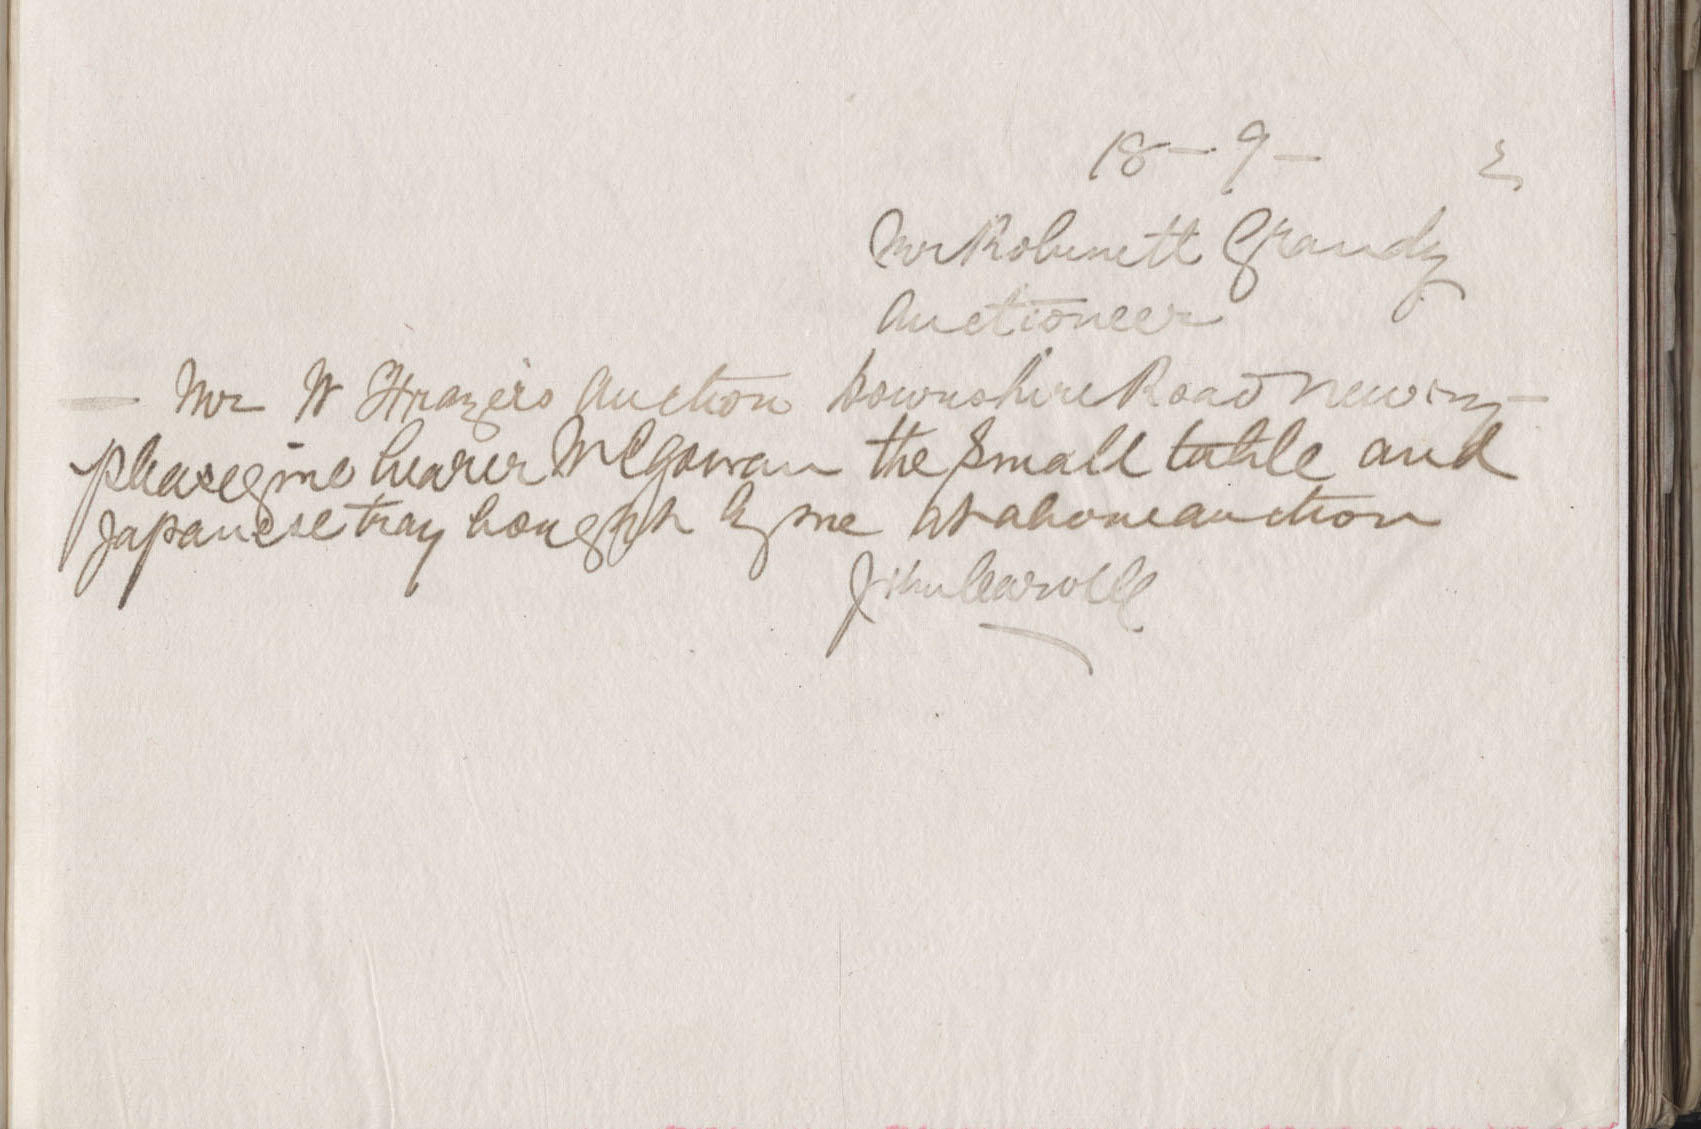 18 - 9 - 2
Mr Robinett Grandy
Auctioneer
— Mr W Frazers Auction Downshire Road Newry —
please give bearer McGowan the small table and
Japanese tray bought by me at above auction
John Carroll